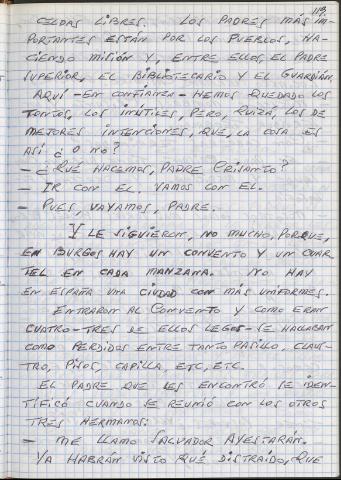 113,
CELDAS LIBRES. LOS PADRES MÁS IM-
PORTANTES ESTÁN POR LOS PUEBLOS, HA-
CIENDO MISIÓN Y, ENTRE ELLOS, EL PADRE
SUPERIOR, EL BIBLIOTECARIO Y EL GUARDIÁN.
AQUÍ - EN CONFIANZA - HEMOS QUEDADO LOS
TONTOS, LOS INÚTILES, PERO, QUIZÁ, LOS DE
MEJORES INTENCIONES, QUE, LA COSA ES
ASÍ ¿ O NO?
- ¿QUÉ HACEMOS, PADRE CRISANTO?
- IR CON EL. VAMOS CON EL.
- PUES, VAYAMOS, PADRE.
Y LE SIGUIERON, NO MUCHO, PORQUE,
EN BURGOS HAY UN CONVENTO Y UN CUAR
TEL EN CADA MANZANA. NO HAY
EN ESPAÑA UNA CIUDAD CON MÁS UNIFORMES.
ENTRARON AL CONVENTO Y COMO ERAN
CUATRO - TRES DE ELLOS LEGOS - SE HALLABAN
COMO PERDIDOS ENTRE TANTO PASILLO, CLAUS-
TRO, PISOS, CAPILLA, ETC, ETC.
EL PADRE QUE LES ENCONTRÓ SE IDEN-
TIFICÓ CUANDO SE REUNIÓ CON LOS OTROS
TRES HERMANOS:
- ME LLAMO SALVADOR AYESTARÁN.
YA HABRÁN VISTO QUÉ DISTRAÍDO, QUE